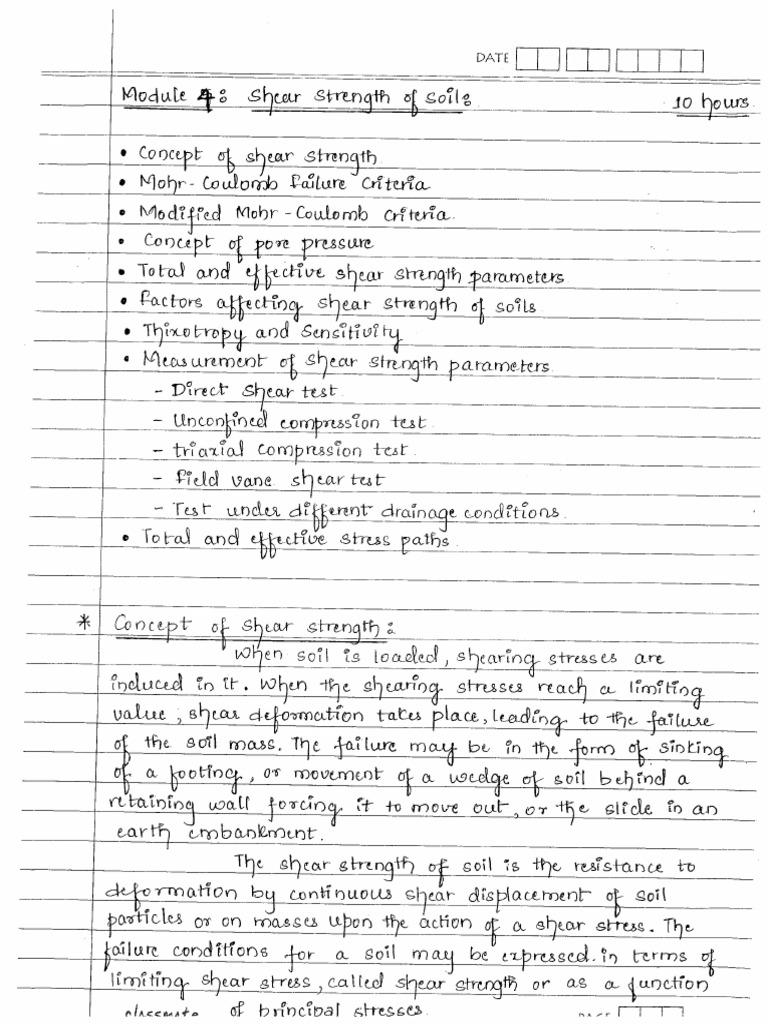 DATE
Module 4: Shear Strength of Soil: 10 hours
• Concept of shear strength
• Mohr-Coulomb Failure Criteria
• Modified Mohr-Coulomb Criteria.
• Concept of pore pressure
• Total and effective shear strength parameters
• Factors affecting shear strength of soils
• Thixotropy and Sensitivity
• Measurement of shear strength parameters
- Direct shear test
- Unconfined compression test
- triaxial compression test
- Field vane shear test
- Test under different drainage conditions.
• Total and effective stress paths.
* Concept of shear strength:
When soil is loaded, shearing stresses are
induced in it. When the shearing stresses reach a limiting
value, shear deformation takes place, leading to the failure
of the soil mass. The failure may be in the form of sinking
of a footing, or movement of a wedge of soil behind a
retaining wall forcing it to move out, or the slide in an
earth embankment.
The shear strength of soil is the resistance to
deformation by continuous shear displacement of soil
particles or on masses upon the action of a shear stress. The
failure conditions for a soil may be expressed in terms of
limiting shear stress, called shear strength or as a function
classmate of principal stresses.
PAGE